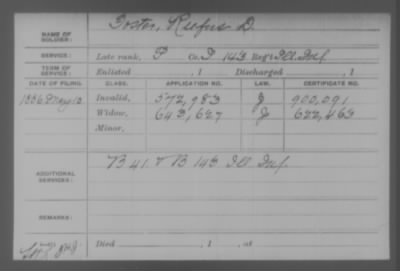 NAME OF SOLDIER: Foster, Reefus D.
SERVICE: Late rank, P Co. D 143 Reg't Ill. Inf.
TERM OF SERVICE: Enlisted , 1 Discharged , 1
DATE OF FILING. CLASS. APPLICATION NO. LAW. CERTIFICATE NO.
1886 May 10 Invalid, 572,983 J 900,091
Widow, 643,627 J 622,463
Minor,
ADDITIONAL SERVICES: B 41 & B 143 Ill Inf.
REMARKS:
Died , 1 , at